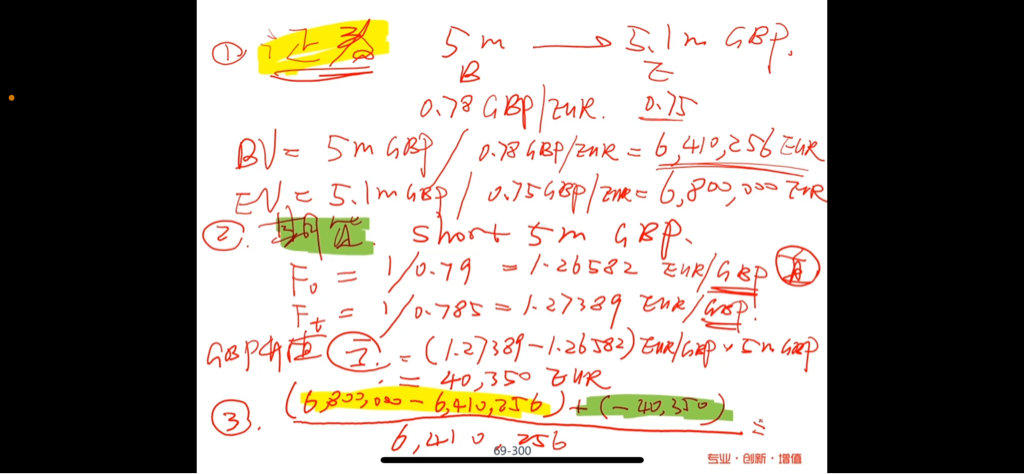 ① 债券 5m → 5.1m GBP.
B E
0.78 GBP/EUR. 0.75
BV = 5m GBP / 0.78 GBP/EUR = 6,410,256 EUR
EV = 5.1m GBP / 0.75 GBP/EUR = 6,800,000 EUR
②. short 5m GBP.
F₀ = 1/0.79 = 1.26582 EUR/GBP
Fₜ = 1/0.785 = 1.27389 EUR/GBP.
GBP升值 = (1.27389 - 1.26582) EUR/GBP × 5m GBP
= 40,350 EUR
③. (6,800,000 - 6,410,256) + (-40,350) =
6,410,256
69-300
专业·创新·增值